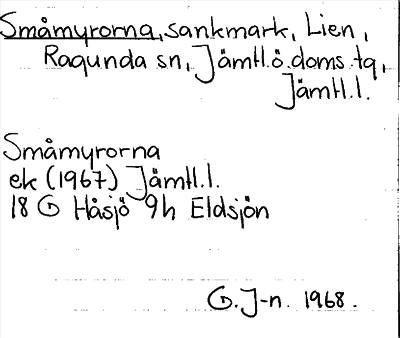 Småmyrorna, sankmark, Lien,
Ragunda sn, Jämtl.ö.doms.tg,
Jämtl.l.
Småmyrorna
ek (1967) Jämtl.l.
18 G Håsjö 9h Eldsjön
G.J-n. 1968.